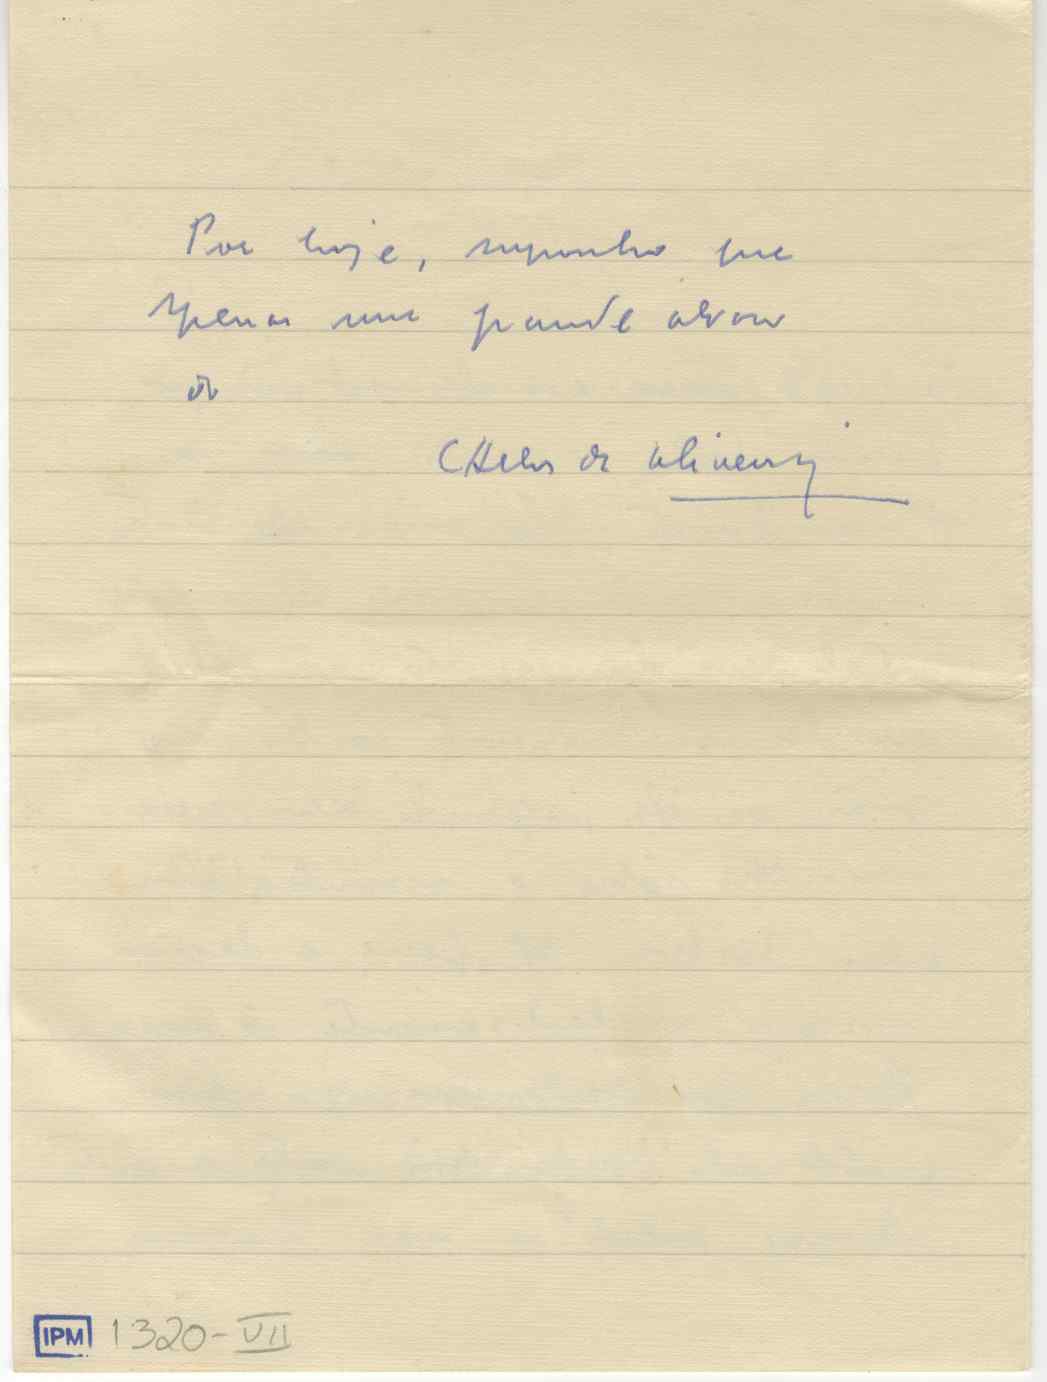 Por hoje, suponho que
apenas um grande abraço
de
CHelos de Oliveira
IPM 1320-VII